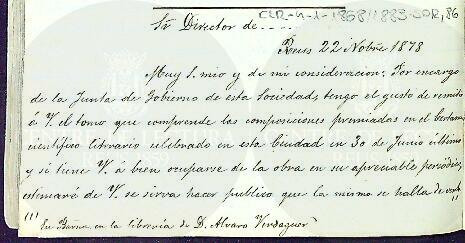 CLR-4-1-1868/1883-JOR, 86
Sr Director de .....
Reus 22 Nobre 1878
Muy S. mio y de mi consideracion: Por encargo
de la Junta de Gobierno de esta Sociedad, tengo el gusto de remitir
á V. el tomo que comprende las composiciones premiadas en el Certamen
científico literario celebrado en esta Ciudad en 30 de Junio último
y si tiene V. á bien ocuparse de la obra en su apreciable periódico,
estimaré de V. se sirva hacer publico que la misma se halla de venta
(1)
En Barna en la librería de D. Alvaro Verdaguer